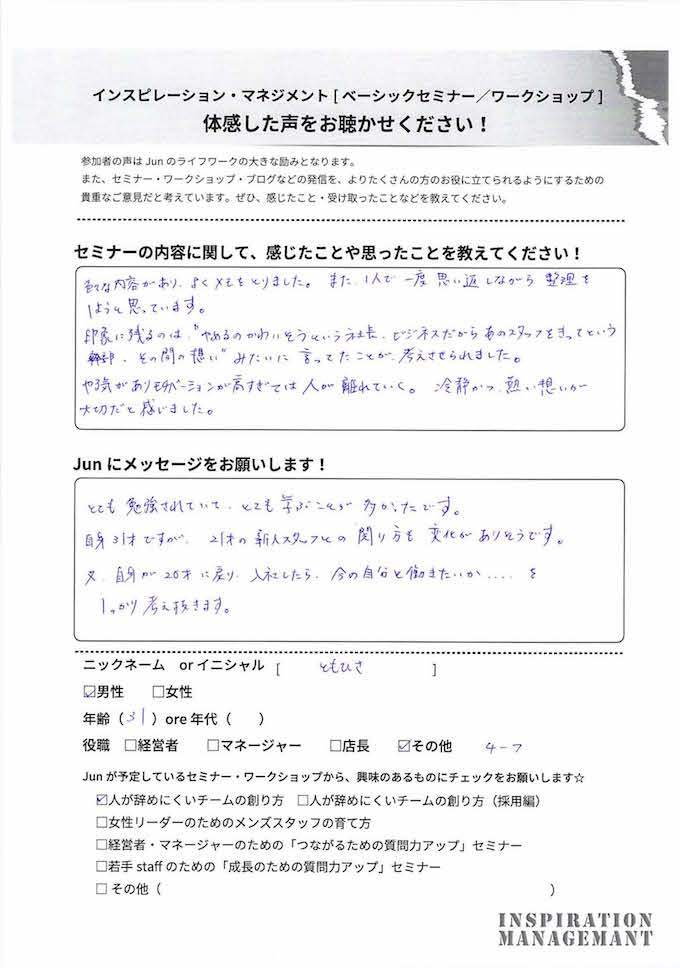 インスピレーション・マネジメント [ ベーシックセミナー／ワークショップ ]
体感した声をお聴かせください！
参加者の声は Jun のライフワークの大きな励みとなります。
また、セミナー・ワークショップ・ブログなどの発信を、よりたくさんの方のお役に立てられるようにするための
貴重なご意見だと考えています。ぜひ、感じたこと・受け取ったことなどを教えてください。
セミナーの内容に関して、感じたことや思ったことを教えてください！
な内容があり、よくメモをとりました。また、1人で一度思い返しながら整理を
しようと思っています。
印象に残るのは、"やめるのかわいそうという社長、ビジネスだからあのスタッフをきってという
幹部、その間の想い"みたいに言ってたことが、考えさせられました。
やる気がありモチベーションが高すぎては人が離れていく。冷静かつ、熱い想いが
大切だと感じました。
Jun にメッセージをお願いします！
とても勉強されていて、とても学ぶことが多かったです。
自身31才ですが、21才の新人スタッフとの関り方も変化がありそうです。
又、自身が20才に戻り、入社したら、今の自分と働きたいか....を
しっかり考え抜きます。
ニックネーム　or イニシャル　[　ともひさ　]
☑男性　□女性
年齢（31）ore 年代（　）
役職　□経営者　□マネージャー　□店長　☑その他　4-7
Jun が予定しているセミナー・ワークショップから、興味のあるものにチェックをお願いします☆
☑人が辞めにくいチームの創り方　□人が辞めにくいチームの創り方（採用編）
□女性リーダーのためのメンズスタッフの育て方
□経営者・マネージャーのための「つながるための質問力アップ」セミナー
□若手 staff のための「成長のための質問力アップ」セミナー
□ その他（　）
INSPIRATION
MANAGEMANT